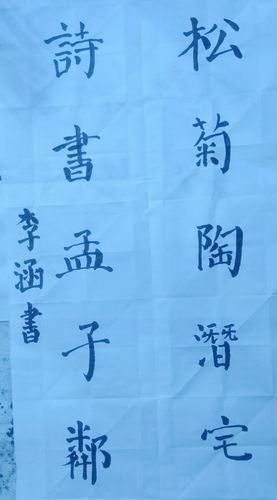 松菊陶潛宅
詩書孟子鄰
李涵書